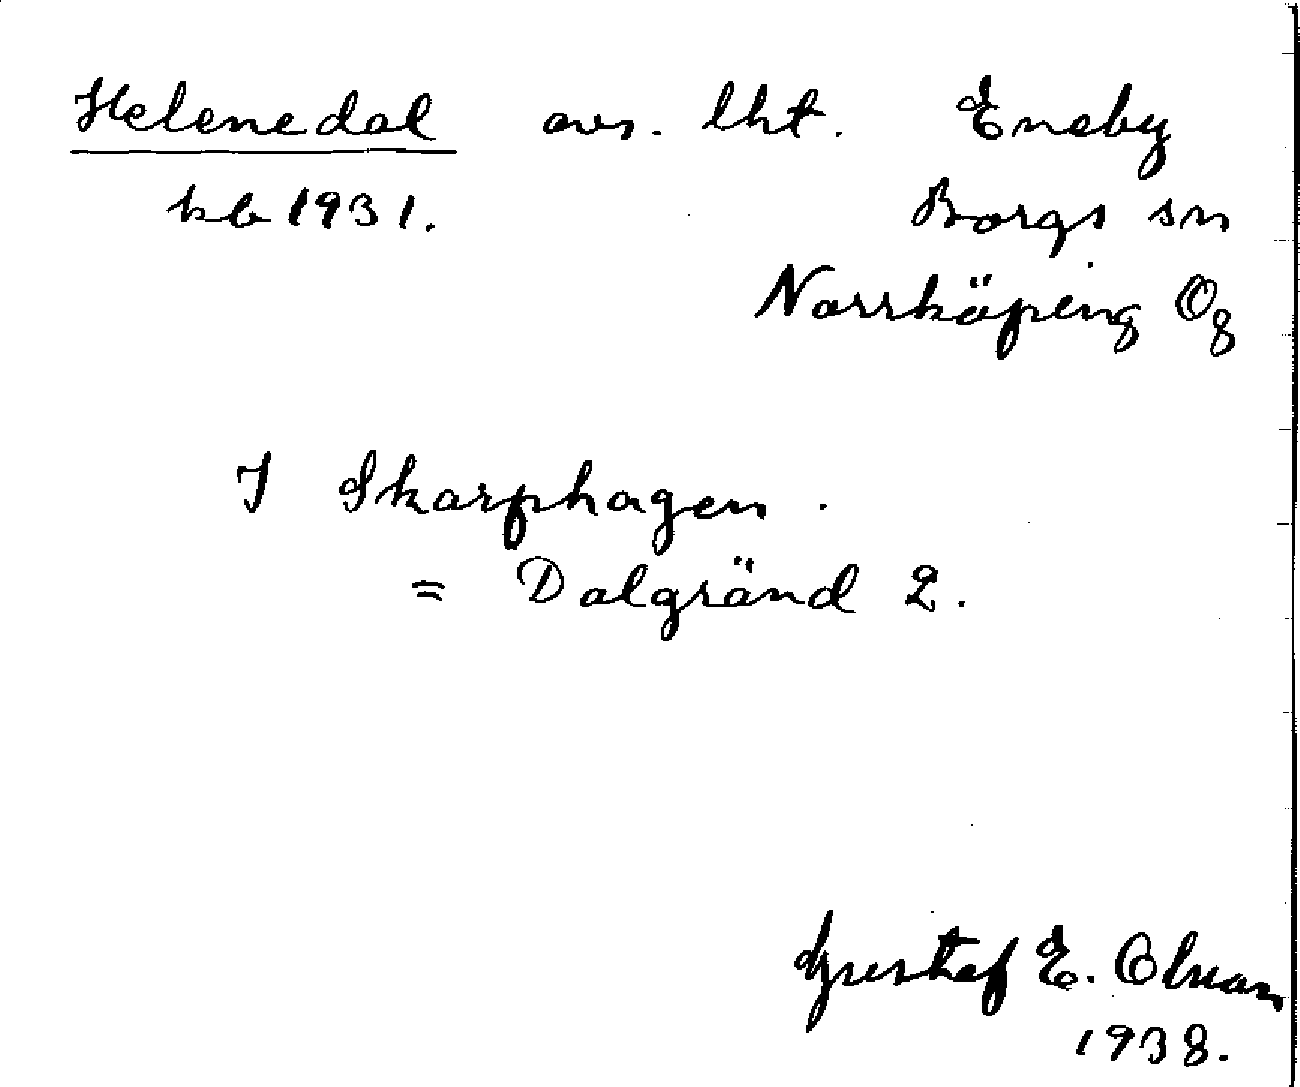 Helenedal avs. lht. Eneby
kb 1931. Borgs sn
Norrköping Ög
I Skarphagen.
= Dalgränd 2.
Gustaf E. Olsson
1938.